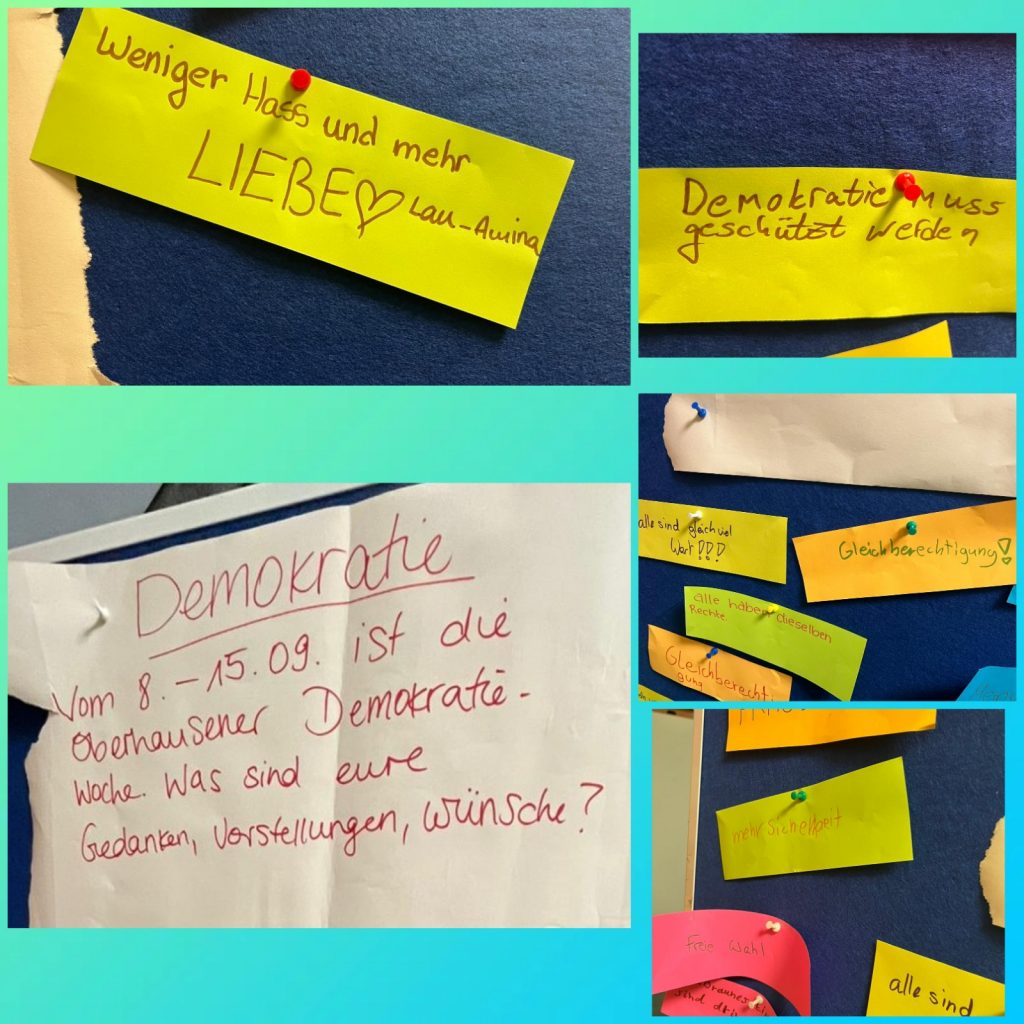 Weniger Hass und mehr
LIEBE♡ Lau-Amina
Demokratie muss
geschützt werden
Demokratie
Vom 8. - 15.09. ist die
Oberhausener Demokratie-
woche. Was sind eure
Gedanken, Vorstellungen, Wünsche?
alle sind gleich viel
Wert!!!
Gleichberechtigung!
alle haben dieselben
Rechte.
Gleichberechti
gung
mehr Sicherheit
Freie Wahl
sind
alle sind